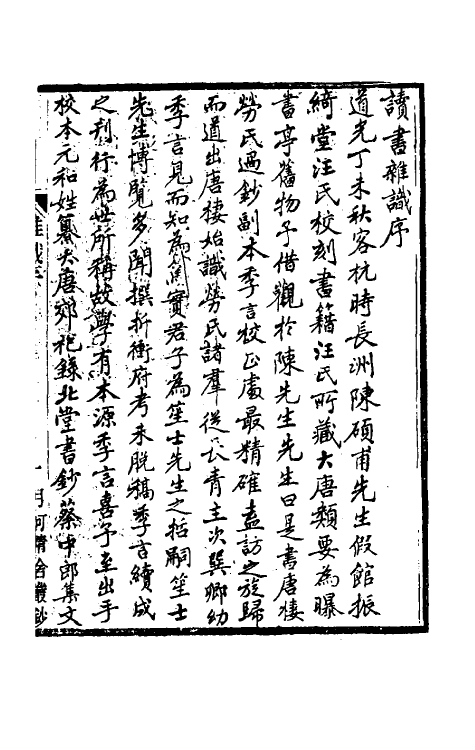 讀書雜識序
道光丁未秋客杭時長洲陳碩甫先生假館振
綺堂汪氏校刻書籍汪氏所藏大唐類要為曝
書亭舊物予借觀於陳先生先生曰是書唐棲
勞氏過鈔副本季言校正處最精確盍訪之旋歸
而道出唐棲始識勞氏諸羣從長青主次巽卿幼
季言見而知為篤實君子為笙士先生之哲嗣笙士
先生博覽多聞撰折衝府考未脫稿季言續成
之刋行為世所稱故學有本源季言喜予至出手
校本元和姓纂大唐郊祀錄北堂書鈔蔡中郎集文
月河精舍叢鈔